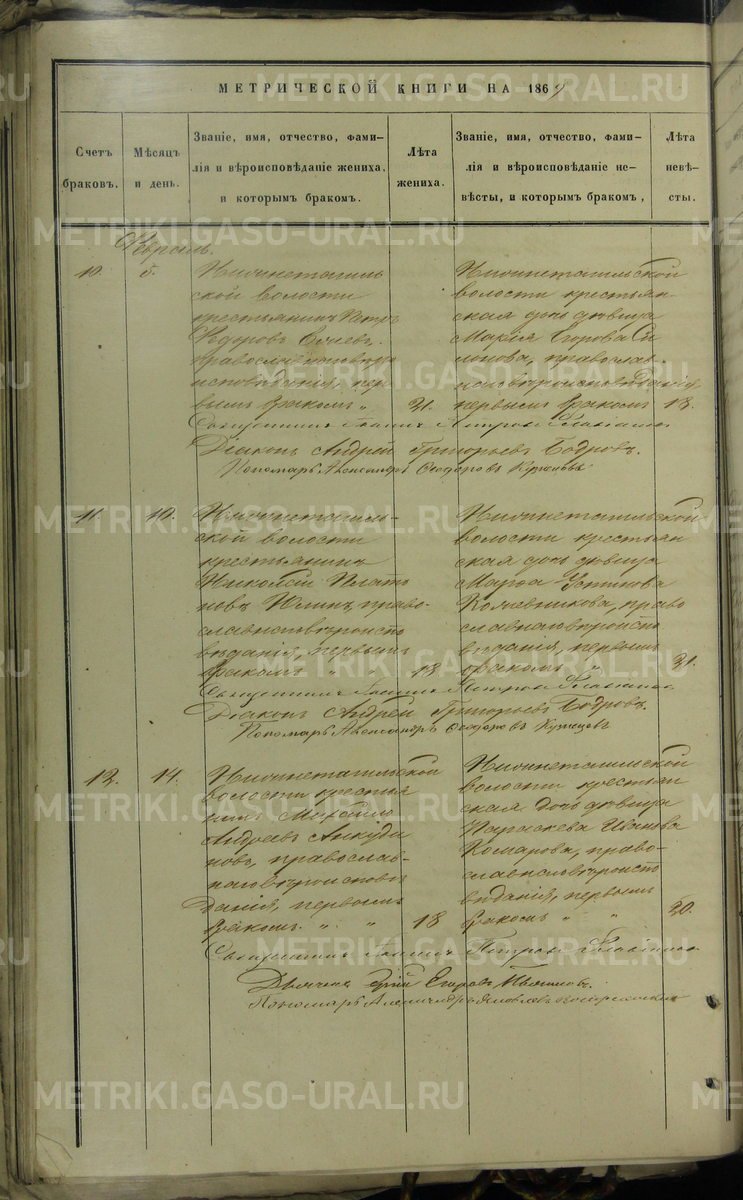 МЕТРИЧЕСКОЙ КНИГИ НА 1869
Счетъ
браковъ.
Мѣсяцъ
и день.
Званіе, имя, отчество, фами-
лія и вѣроисповѣданіе жениха,
и которымъ бракомъ.
Лѣта
жениха.
Званіе, имя, отчество, фами-
лія и вѣроисповѣданіе не-
вѣсты, и которымъ бракомъ,
Лѣта
невѣ-
сты.
Февраль.
10.
5.
Нижнетагиль
ской волости
крестьянинъ Петръ
Ѳедоровъ
православнаго вѣро
исповѣданія, пер
вымъ бракомъ „
21.
Нижнетагильской
волости крестьян-
ская дочь дѣвица
Марія Егорова
православ.
вѣроисповѣданія
первымъ бракомъ
18.
Священникъ Іоаннъ Петровъ
Діаконъ Андрей Григорьевъ Бодровъ.
Пономарь Александръ Ѳеодоровъ
11.
10.
Нижнетагиль-
ской волости
крестьянинъ
Николай Плато
новъ Юдинъ, право-
славнаго вѣроиспо
вѣданія, первымъ
бракомъ „ „
18.
Нижнетагильской
волости крестьян
ская дочь дѣвица
Марѳа Устинова
Кожевникова, право
славнаго вѣроиспо
вѣданія, первымъ
бракомъ „
21.
Священникъ Іоаннъ Петровъ
Діаконъ Андрей Григорьевъ Бодровъ.
Пономарь Александръ Ѳеодоровъ
12.
14.
Нижнетагильской
волости крестья
нинъ Михаило
Андреевъ Анкуди
новъ, православ-
наго вѣроисповѣ
данія, первымъ
бракомъ. „ „
18
Нижнетагильской
волости крестьян
ская дочь дѣвица
Параскева Иванова
Комарова, право-
славнаго вѣроиспо
вѣданія, первымъ
бракомъ „ „
20.
Священникъ Іоаннъ Петровъ
Дьячекъ Егоровъ
Пономарь Александръ Яковлевъ
METRIKI.GASO-URAL.RU